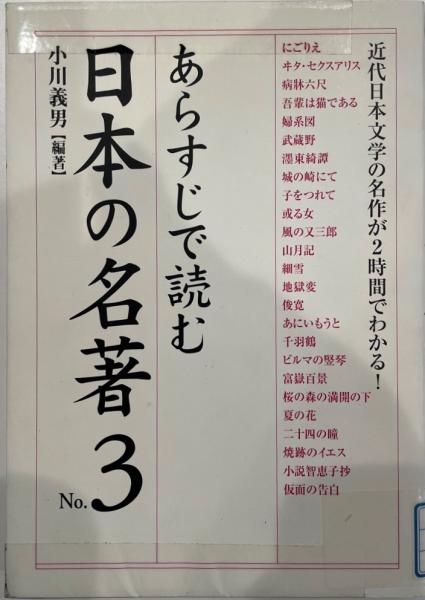 近代日本文学の名作が2時間でわかる!
にごりえ
ヰタ・セクスアリス
病牀六尺
吾輩は猫である
婦系図
武蔵野
濹東綺譚
城の崎にて
子をつれて
或る女
風の又三郎
山月記
細雪
地獄変
俊寛
あにいもうと
千羽鶴
ビルマの竪琴
富嶽百景
桜の森の満開の下
夏の花
二十四の瞳
焼跡のイエス
小説智恵子抄
仮面の告白
あらすじで読む
日本の名著
No.3
小川義男【編著】